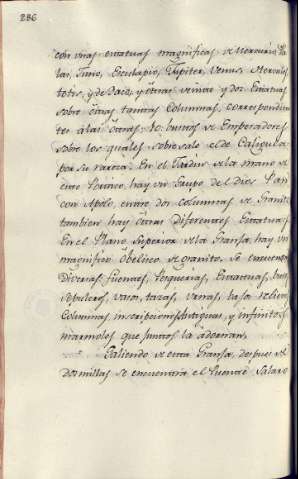 286
con unas estatuas magnificas de Mercurio Pa
las, Juno, Esculapio, Jupiter, Venus,
y de Baco, y otras veinte y dos Estatuas
sobre otras tantas Columnas, correspondien
tes á las otras, 10. bustos de Emperadores
sobre los quales sobresale el de Caligula
por su rareza. En el Jardin de la mano de
este Portico, hay un Grupo del Dios Pan
con Apolo, entre dos columnas de Granito
tambien hay otras diferentes Estatuas
En el Plano Superior de la Granja, hay un
magnifico Obelisco de granito. Se encuentran
Diversas fuentes, Estatuas, bus
Sepulcros, vasos, tazas, Urnas, baxo relieves
Columnas, inscripciones Antiguas, y infinitos
marmoles que juntos la adornan.
Saliendo de esta Granja, despues de
dos millas se encuentra el Puente Salaro